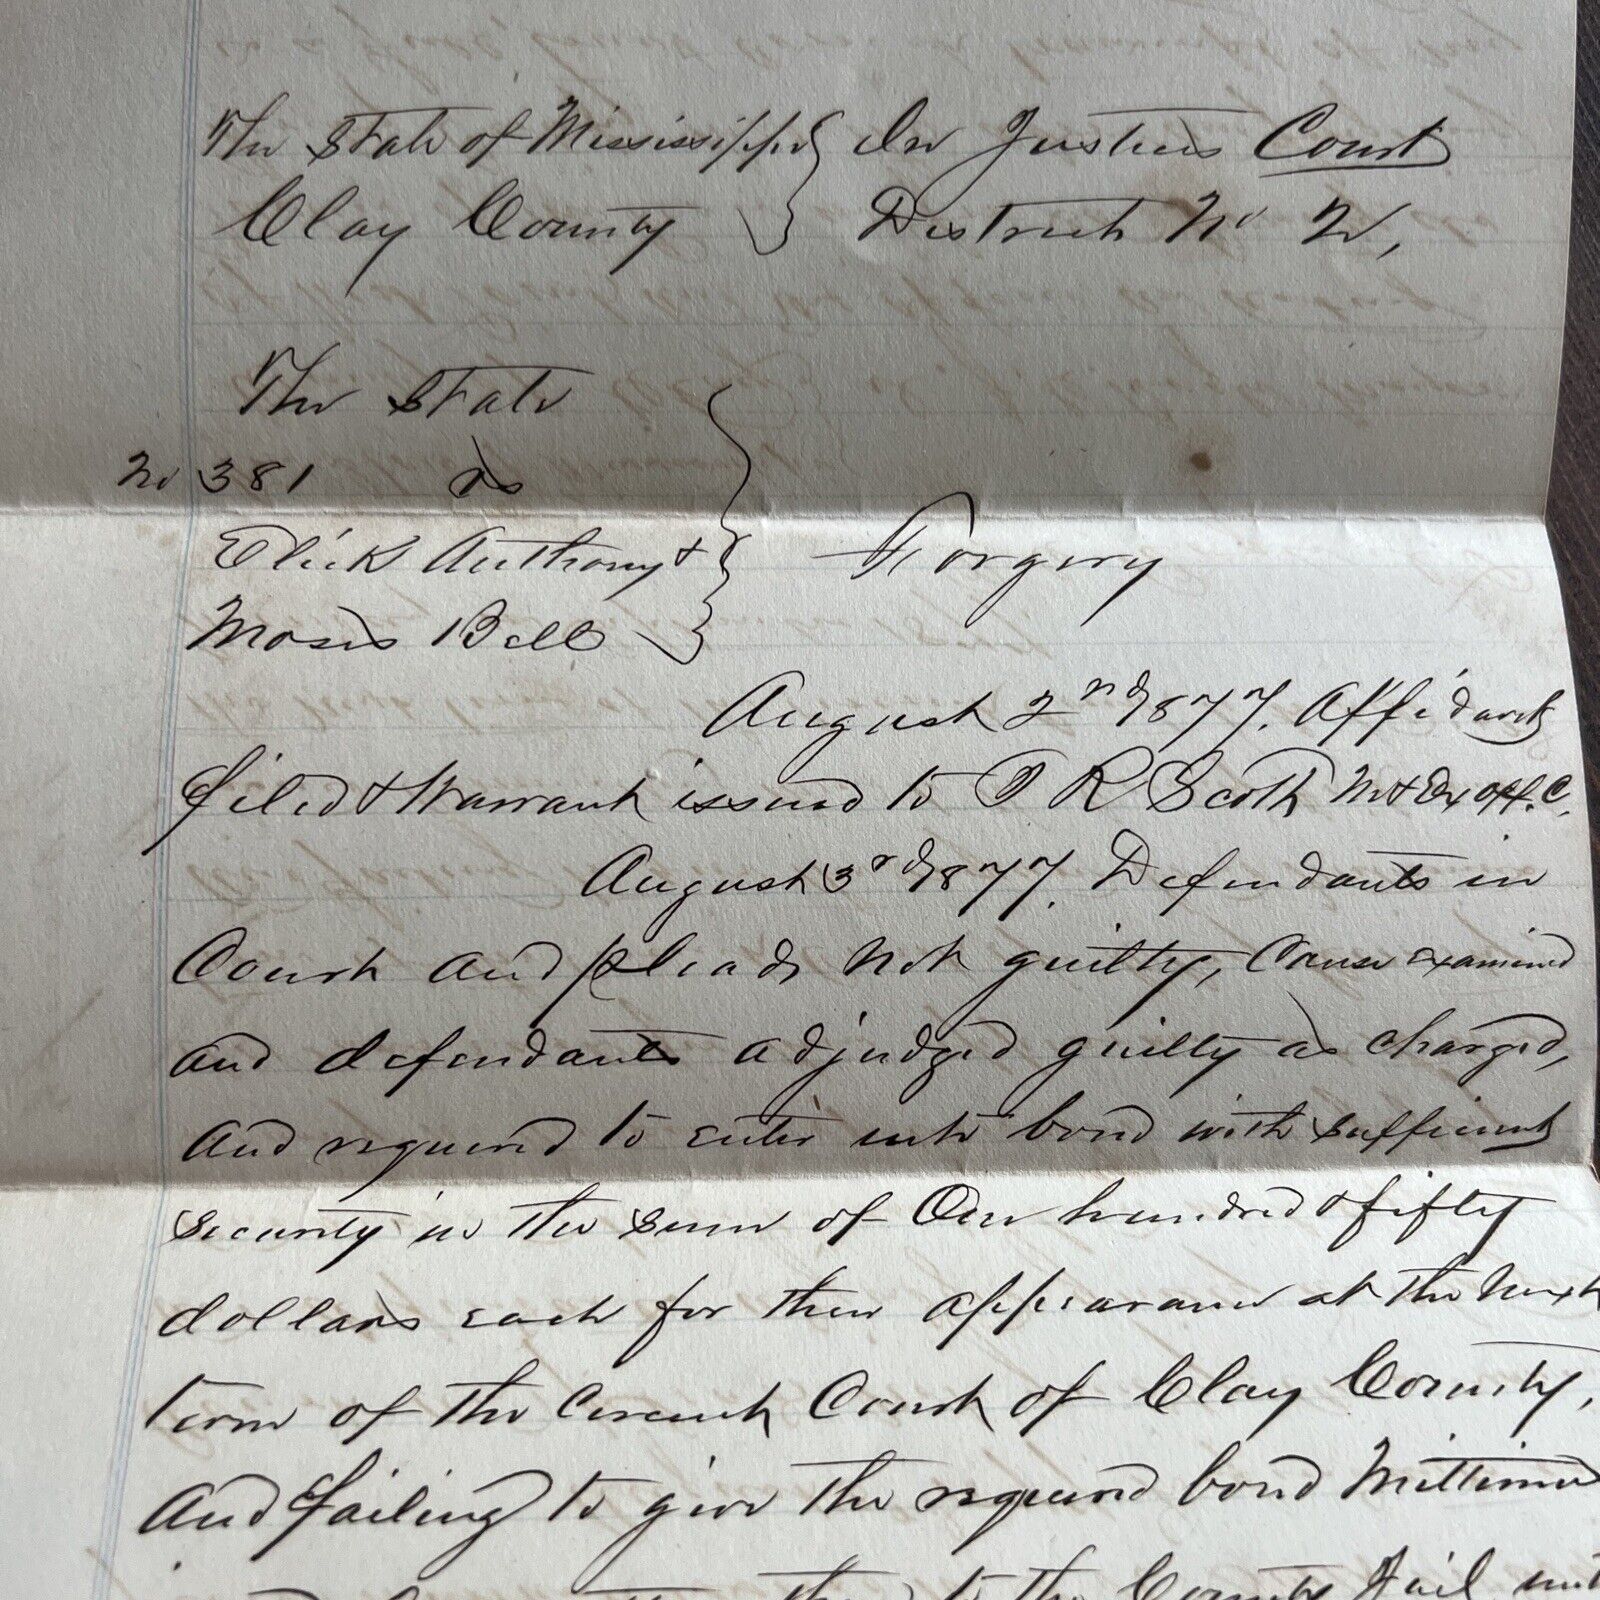 The State of Mississippi } In Justices Court
Clay County } District No 2,
The State
No 381 vs
Elick Anthony &
Moses Bell } Forgery
August 2nd 1877. Affidavit
filed & Warrant issued to R Scott M & Ex off. C.
August 3rd 1877. Defendants in
Court and pleads not guilty, Cause examined
and defendants adjudged guilty as charged,
and required to enter into bond with sufficient
security in the sum of One hundred & fifty
dollars each for their appearance at the next
term of the Circuit Court of Clay County,
And failing to give the required bond Mittimus
to the County Jail